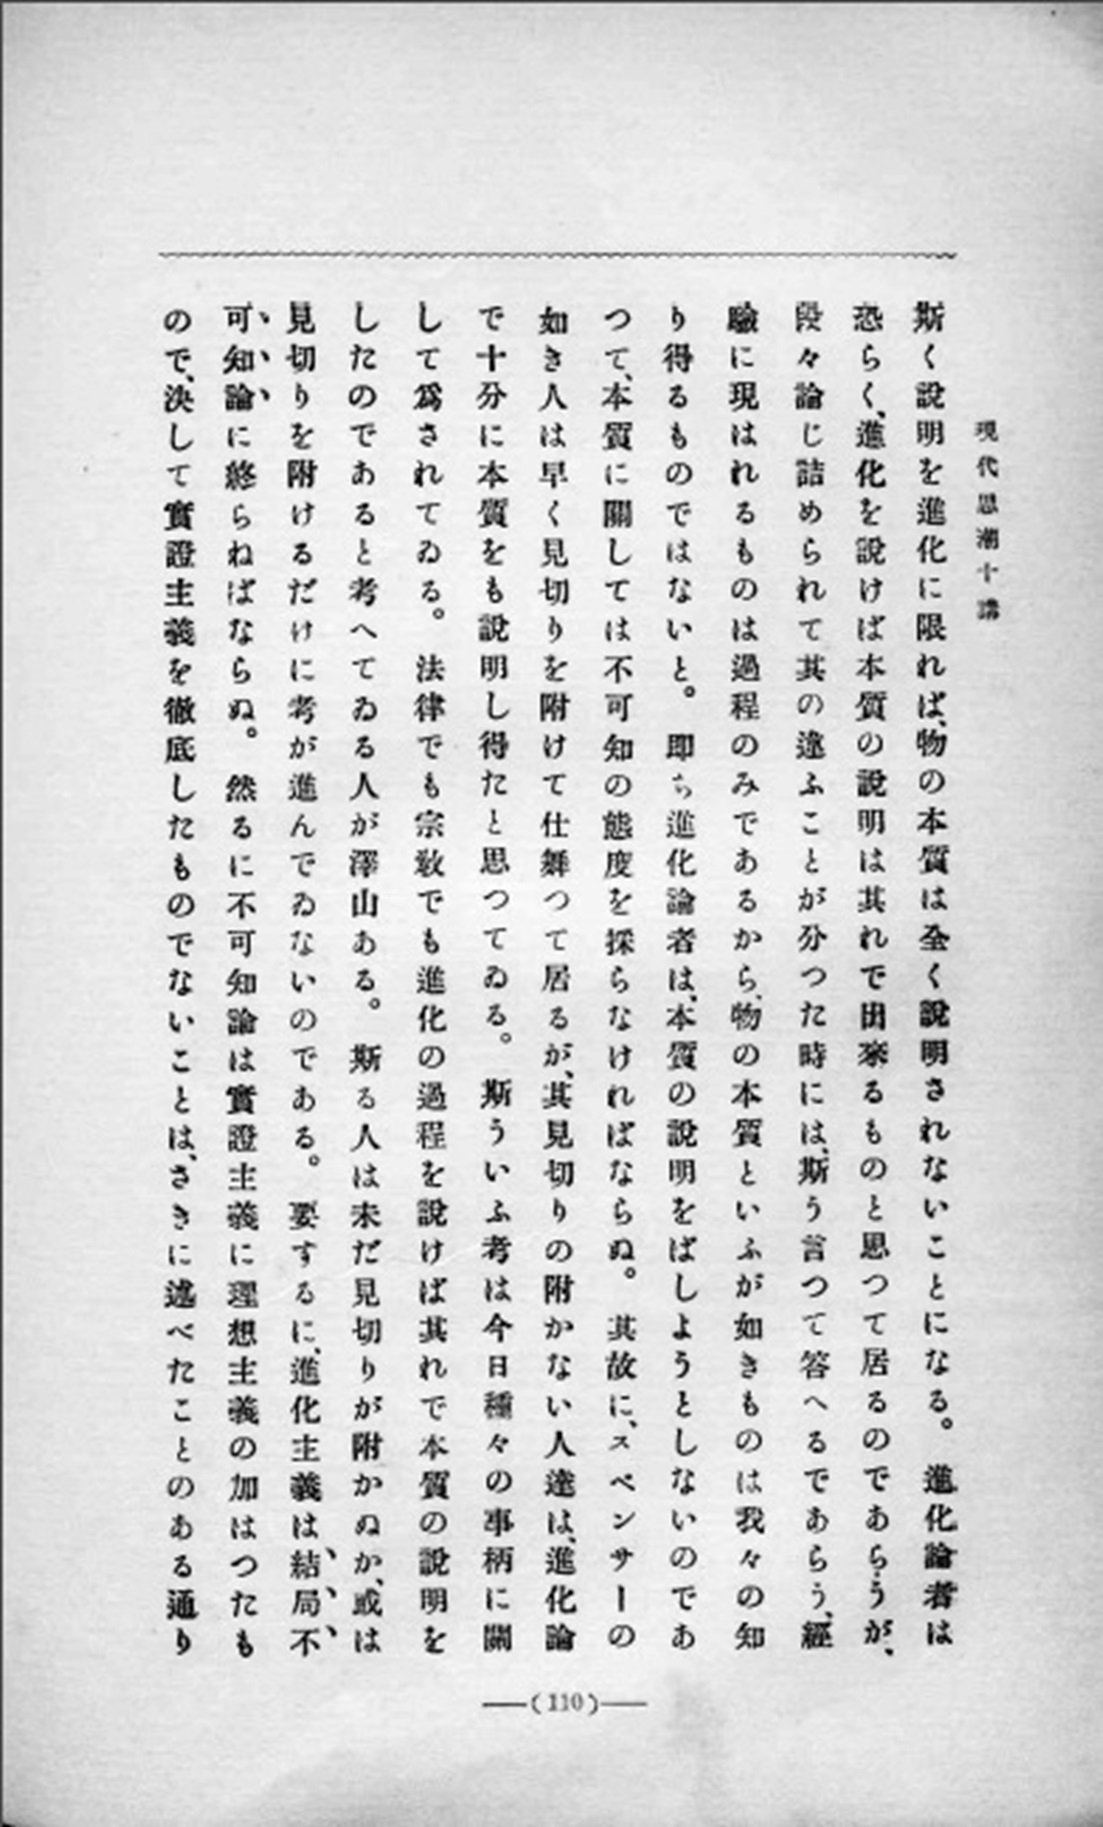 現代思潮十講
斯く說明を進化に限れば、物の本質は全く說明されないことになる。進化論者は
恐らく、進化を說けば本質の說明は其れで出來るものと思つて居るのであらうが、
段々論じ詰められて其の違ふことが分つた時には、斯う言つて答へるであらう、經
驗に現はれるものは過程のみであるから、物の本質といふが如きものは我々の知
り得るものではないと。卽ち進化論者は、本質の說明をばしようとしないのであ
つて、本質に關しては不可知の態度を採らなければならぬ。其故に、スペンサーの
如き人は早く見切りを附けて仕舞つて居るが、其見切りの附かない人達は、進化論
で十分に本質をも說明し得たと思つてゐる。斯ういふ考は今日種々の事柄に關
して爲されてゐる。法律でも宗敎でも進化の過程を說けば其れで本質の說明を
したのであると考へてゐる人が澤山ある。斯る人は未だ見切りが附かぬか、或は
見切りを附けるだけに考が進んでゐないのである。要するに、進化主義は、結局、不
可知論に終らねばならぬ。然るに不可知論は實證主義に理想主義の加はつたも
ので、決して實證主義を徹底したものでないことは、さきに述べたことのある通り
(110)